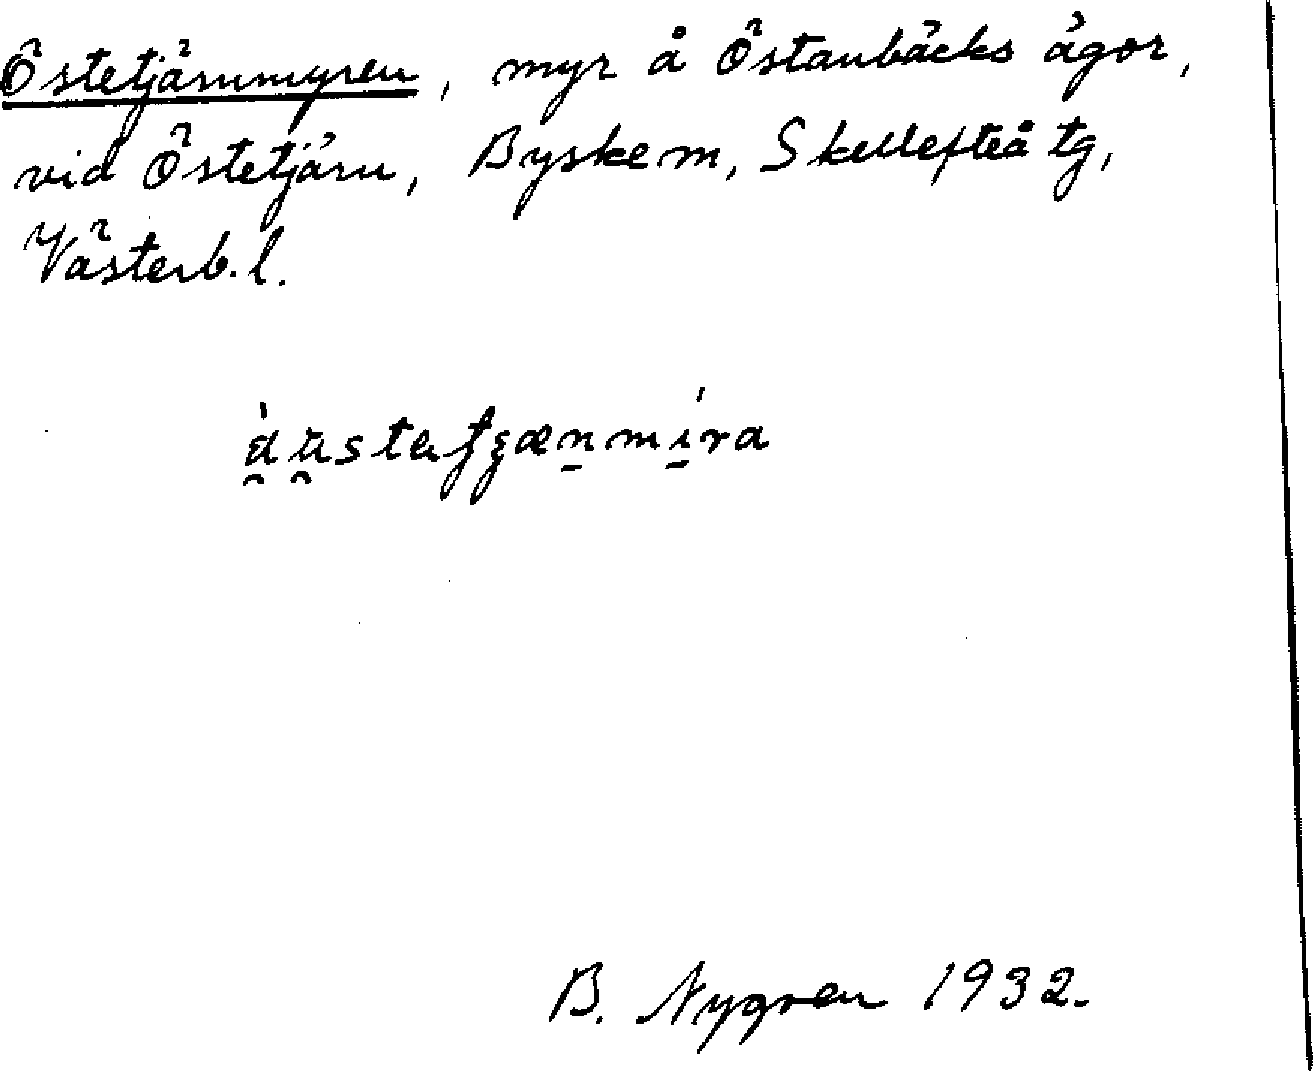 Östetjärnmyren, myr å Östanbäcks ägor,
vid Östetjärn, Byske m, Skellefteå tg,
Västerb. l.
B. Nygren 1932.